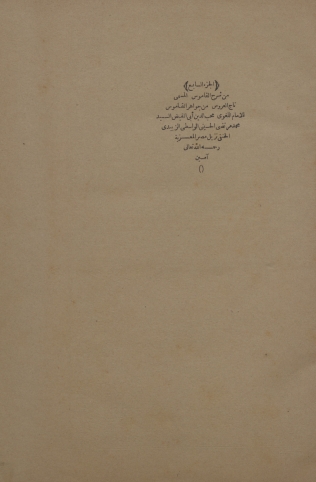 ﴿الجزء السابع﴾
من شرح القاموس المسمى
تاج العروس من جواهر القاموس
للامام اللغوى محب الدين أبى الفيض السيد
محمد مرتضى الحسينى الواسطى الزبيدى
الحنفى نزيل مصر المعزية
رحمه الله تعالى
آمين